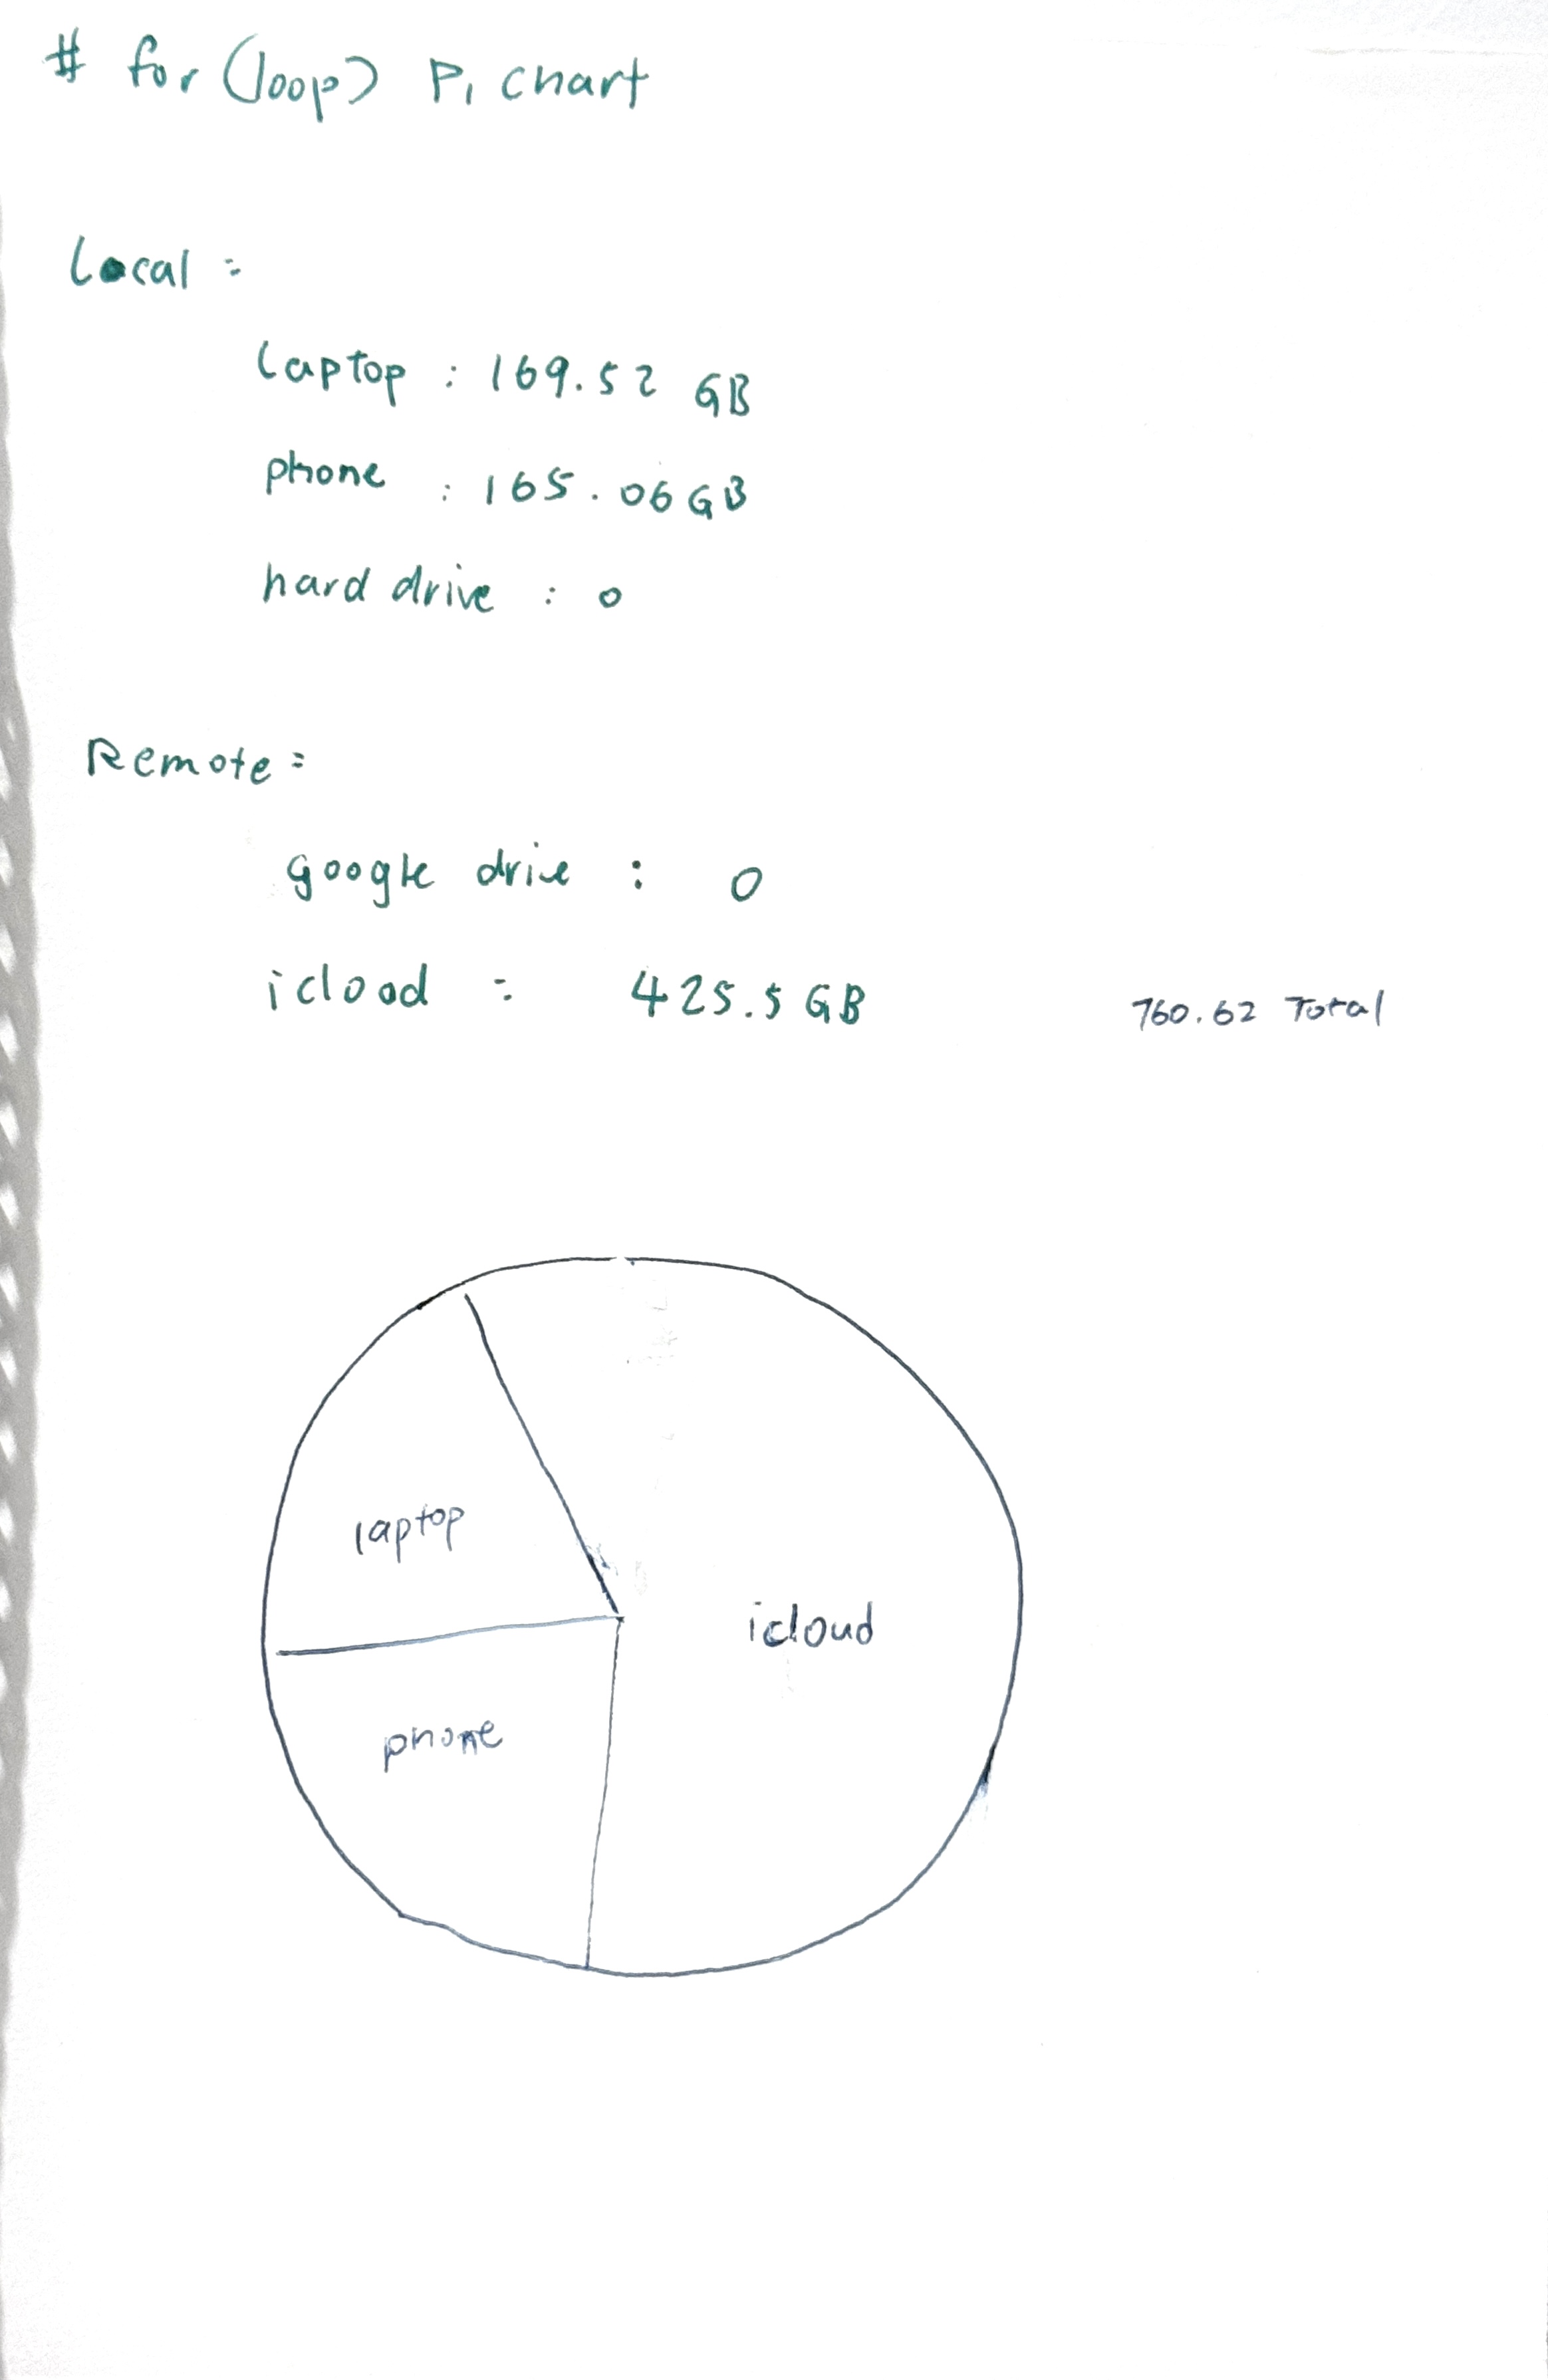 # for (loop) Pi chart
Local :
laptop : 169.52 GB
phone : 165.06 GB
hard drive : 0
Remote :
google drive : 0
icloud : 425.5 GB
760.62 Total
laptop
icloud
phone